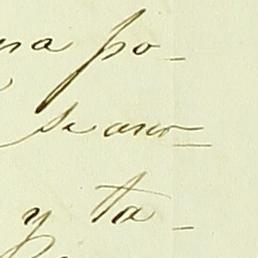 na po-
se ano-
y ta-